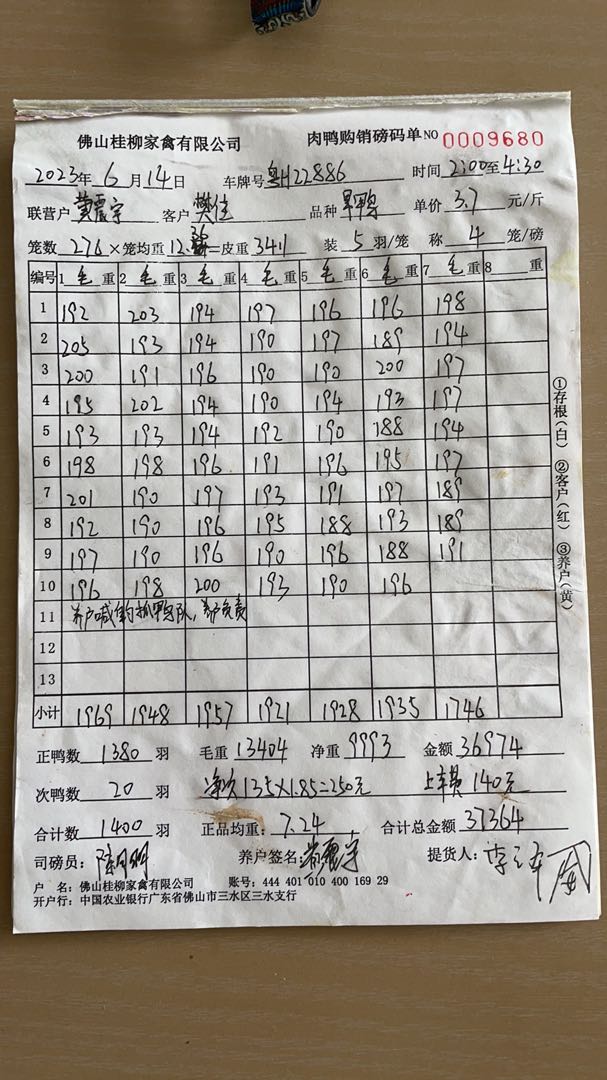 佛山桂柳家禽有限公司 肉鸭购销磅码单 NO 0009680
2023年6月14日 车牌号 粤H22886 时间 2:00至4:30
联营户 黄震宇 客户 樊佳 品种 旱鸭 单价 3.7 元/斤
笼数 276 ×笼均重 12.36 =皮重 3411 装 5 羽/笼 称 4 笼/磅
编号 1 毛 重 2 毛 重 3 毛 重 4 毛 重 5 毛 重 6 毛 重 7 毛 重 8 重
1 192 203 194 197 196 196 198
2 205 193 194 190 197 189 194
3 200 191 196 190 190 200 197
4 195 202 194 190 194 193 197
5 193 193 194 192 190 188 194
6 198 198 196 191 196 195 197
7 201 190 197 193 191 197 189
8 192 190 196 195 188 193 189
9 197 190 196 190 196 188 191
10 196 198 200 193 190 196
11 养户喊的抓鸭队，养户负责
12
13
小计 1969 1948 1957 1921 1928 1935 1746
①存根(白) ②客户(红) ③养户(黄)
正鸭数 1380 羽 毛重 13404 净重 9993 金额 36974
次鸭数 20 羽 净次135×1.85=250元 上车费140元
合计数 1400 羽 正品均重: 7.24 合计总金额 37364
司磅员: 养户签名: 黄震宇 提货人:
户 名: 佛山桂柳家禽有限公司 账号: 444 401 010 400 169 29
开户行: 中国农业银行广东省佛山市三水区三水支行